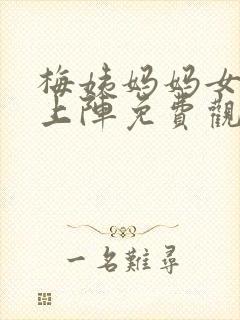 梅姨妈妈女
上陣免費觀
一名難尋